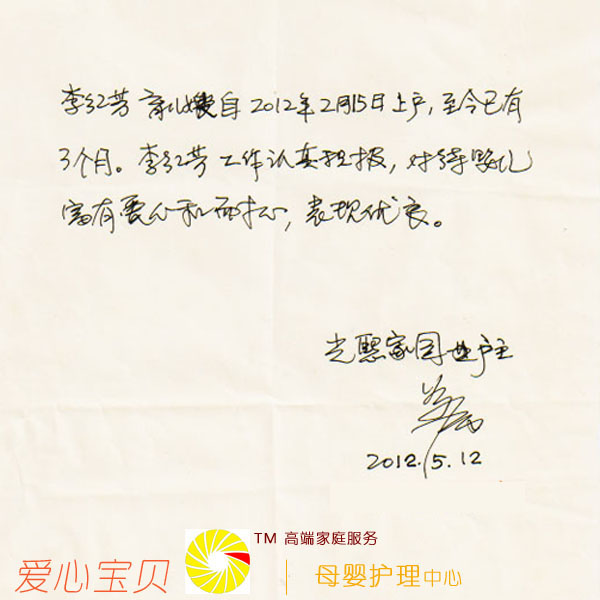 李红芳育儿嫂自2012年2月15日上户,至今已有
3个月。李红芳工作认真积极,对待婴儿
富有爱心和耐心,表现优良。
光熙家园 户主
2012.5.12
TM 高端家庭服务
爱心宝贝 | 母婴护理中心